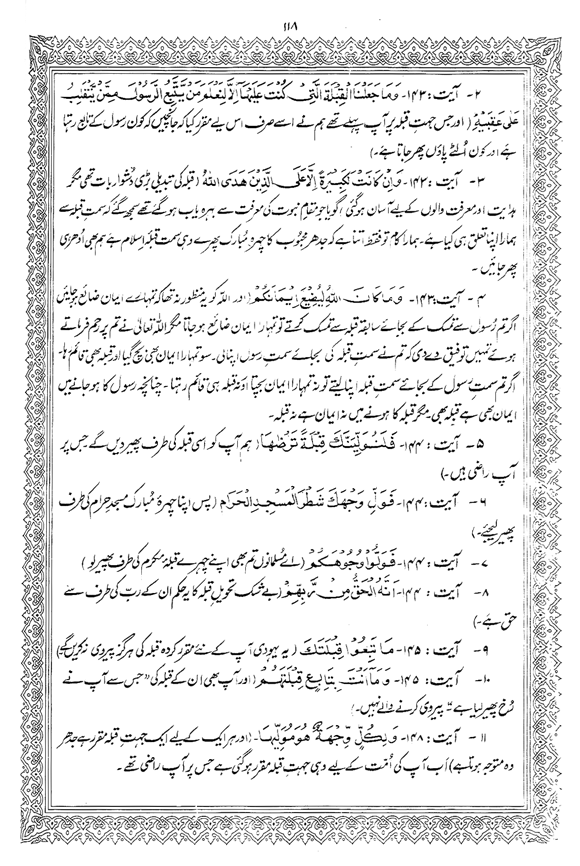 ۱۱۸
۲- آیت: ۱۴۳- وَمَا جَعَلْنَا الْقِبْلَةَ الَّتِي كُنْتَ عَلَيْهَا إِلَّا لِنَعْلَمَ مَنْ يَتَّبِعُ الرَّسُولَ مِمَّنْ يَنْقَلِبُ
عَلَى عَقِبَيْهِ (اور جس جہتِ قبلہ پر آپ پہلے تھے ہم نے اسے صرف اس لیے مقرر کیا کہ جانچیں کہ کون رسول کے تابع رہتا
ہے اور کون اُلٹے پاؤں پھر جاتا ہے۔)
۳- آیت: ۱۴۳- وَإِنْ كَانَتْ لَكَبِيرَةً إِلَّا عَلَى الَّذِينَ هَدَى اللّٰهُ (قبلہ کی تبدیلی بڑی دشوار بات تھی مگر
ہدایت اور معرفت والوں کے لیے آسان ہو گئی) گویا جو مقامِ نبوت کی معرفت سے بہرہ یاب ہو گئے تھے سمجھ گئے کہ سمتِ قبلہ سے
ہمارا اپنا تعلق ہی کیا ہے۔ ہمارا کام تو فقط اتنا ہے کہ جدھر محبوب کا چہرۂ مُبارک پھرے وہی سمت قبلۂ اسلام ہے ہم بھی اُدھر ہی
پھر جائیں۔
۴- آیت: ۱۴۳- وَمَا كَانَ اللّٰهُ لِيُضِيعَ إِيمَانَكُمْ (اور اللہ کو یہ منظور نہ تھا کہ تمہارے ایمان ضائع ہو جائیں
اگر تم رسول سے تمسک کے بجائے سابقہ قبلہ سے تمسک کرتے تو تمہارا ایمان ضائع ہو جاتا مگر اللہ تعالیٰ نے تم پر رحم فرماتے
ہوئے تمہیں توفیق دے دی کہ تم نے سمتِ قبلہ کی بجائے سمتِ رسول اپنا لی۔ سو تمہارا ایمان بھی بچ گیا اور قبلہ بھی قائم رہا۔
اگر تم سمتِ رسول کے بجائے سمتِ قبلہ اپنا لیتے تو نہ تمہارا ایمان بچتا اور نہ قبلہ ہی قائم رہتا۔ چنانچہ رسول کا ہو جانے میں
ایمان بھی ہے قبلہ بھی۔ مگر قبلہ کا ہونے میں نہ ایمان ہے نہ قبلہ۔
۵- آیت: ۱۴۴- فَلَنُوَلِّيَنَّكَ قِبْلَةً تَرْضٰهَا (ہم آپ کو اسی قبلہ کی طرف پھیر دیں گے جس پر
آپ راضی ہیں۔)
۶- آیت: ۱۴۴- فَوَلِّ وَجْهَكَ شَطْرَ الْمَسْجِدِ الْحَرَامِ (پس اپنا چہرۂ مُبارک مسجدِ حرام کی طرف
پھیر لیجیے۔)
۷- آیت: ۱۴۴- فَوَلُّوا وُجُوهَكُمْ (اے مُسلمانوں تم بھی اپنے چہرے قبلۂ مکرم کی طرف پھیر لو)
۸- آیت: ۱۴۴- أَنَّهُ الْحَقُّ مِنْ رَّبِّهِمْ (بے شک تحویلِ قبلہ کا یہ حکم ان کے ربّ کی طرف سے
حق ہے۔)
۹- آیت: ۱۴۵- مَا تَبِعُوا قِبْلَتَكَ (یہ یہودی آپ کے نئے مقرر کردہ قبلہ کی ہرگز پیروی نہ کریں گے)
۱۰- آیت: ۱۴۵- وَمَا أَنْتَ بِتَابِعٍ قِبْلَتَهُمْ (اور آپ بھی ان کے قبلہ کی "جس سے آپ نے
رُخ پھیر لیا ہے" پیروی کرنے والے نہیں۔)
۱۱- آیت: ۱۴۸- وَلِكُلٍّ وِّجْهَةٌ هُوَ مُوَلِّيهَا۔ (اور ہر ایک کے لیے ایک جہتِ قبلہ مقرر ہے جدھر
وہ متوجہ ہوتا ہے) اَب آپ کی اُمّت کے لیے وہی جہتِ قبلہ مقرر ہو گئی ہے جس پر آپ راضی تھے۔